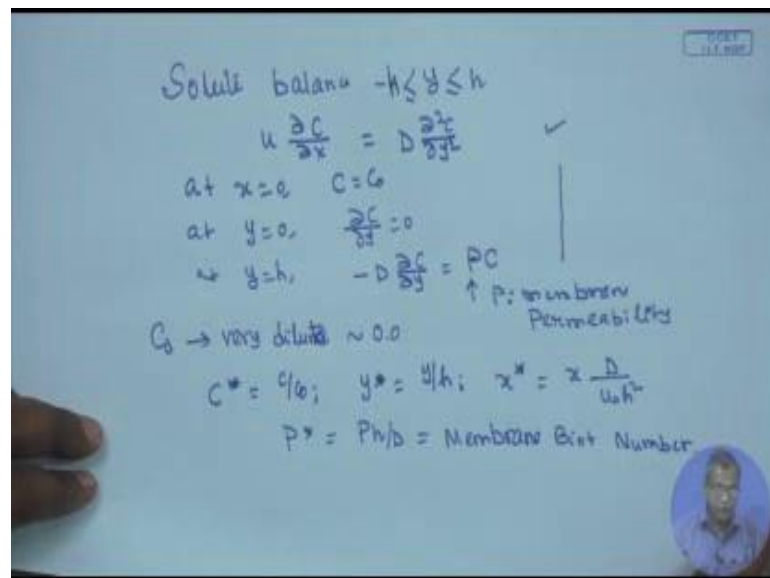 Solute balance -h ≤ y ≤ h
u ∂C/∂x = D ∂²C/∂y²
at x=0 C=C₀
at y=0, ∂C/∂y = 0
at y=h, -D ∂C/∂y = PC
↑ P: membrane
Permeability
→ very dilute ~ 0.0
C* = C/C₀; y* = y/h; x* = x D/u₀h²
P* = Ph/D = Membrane Biot Number